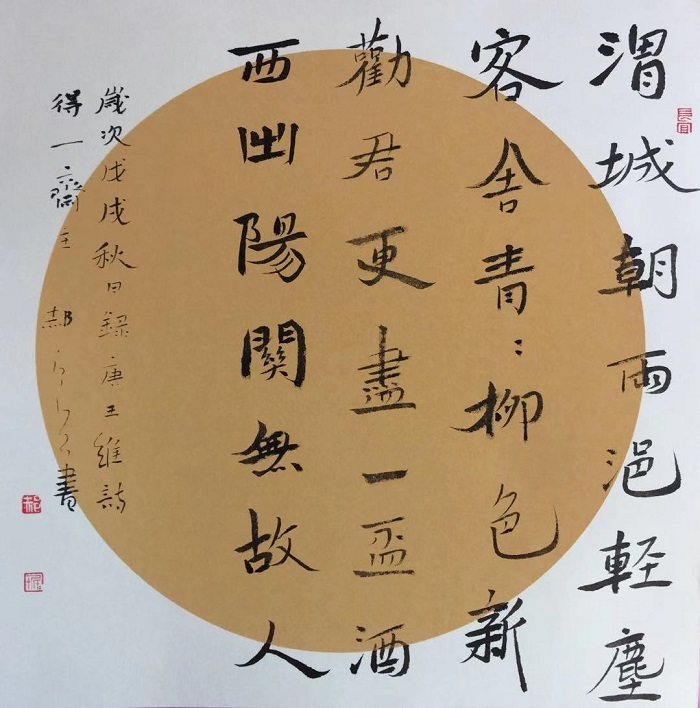 渭城朝雨浥軽塵
客舎青〻柳色新
勸君更盡一盃酒
西出陽關無故人
歲次戊戌秋日録唐王維詩
得一齋主郝 書